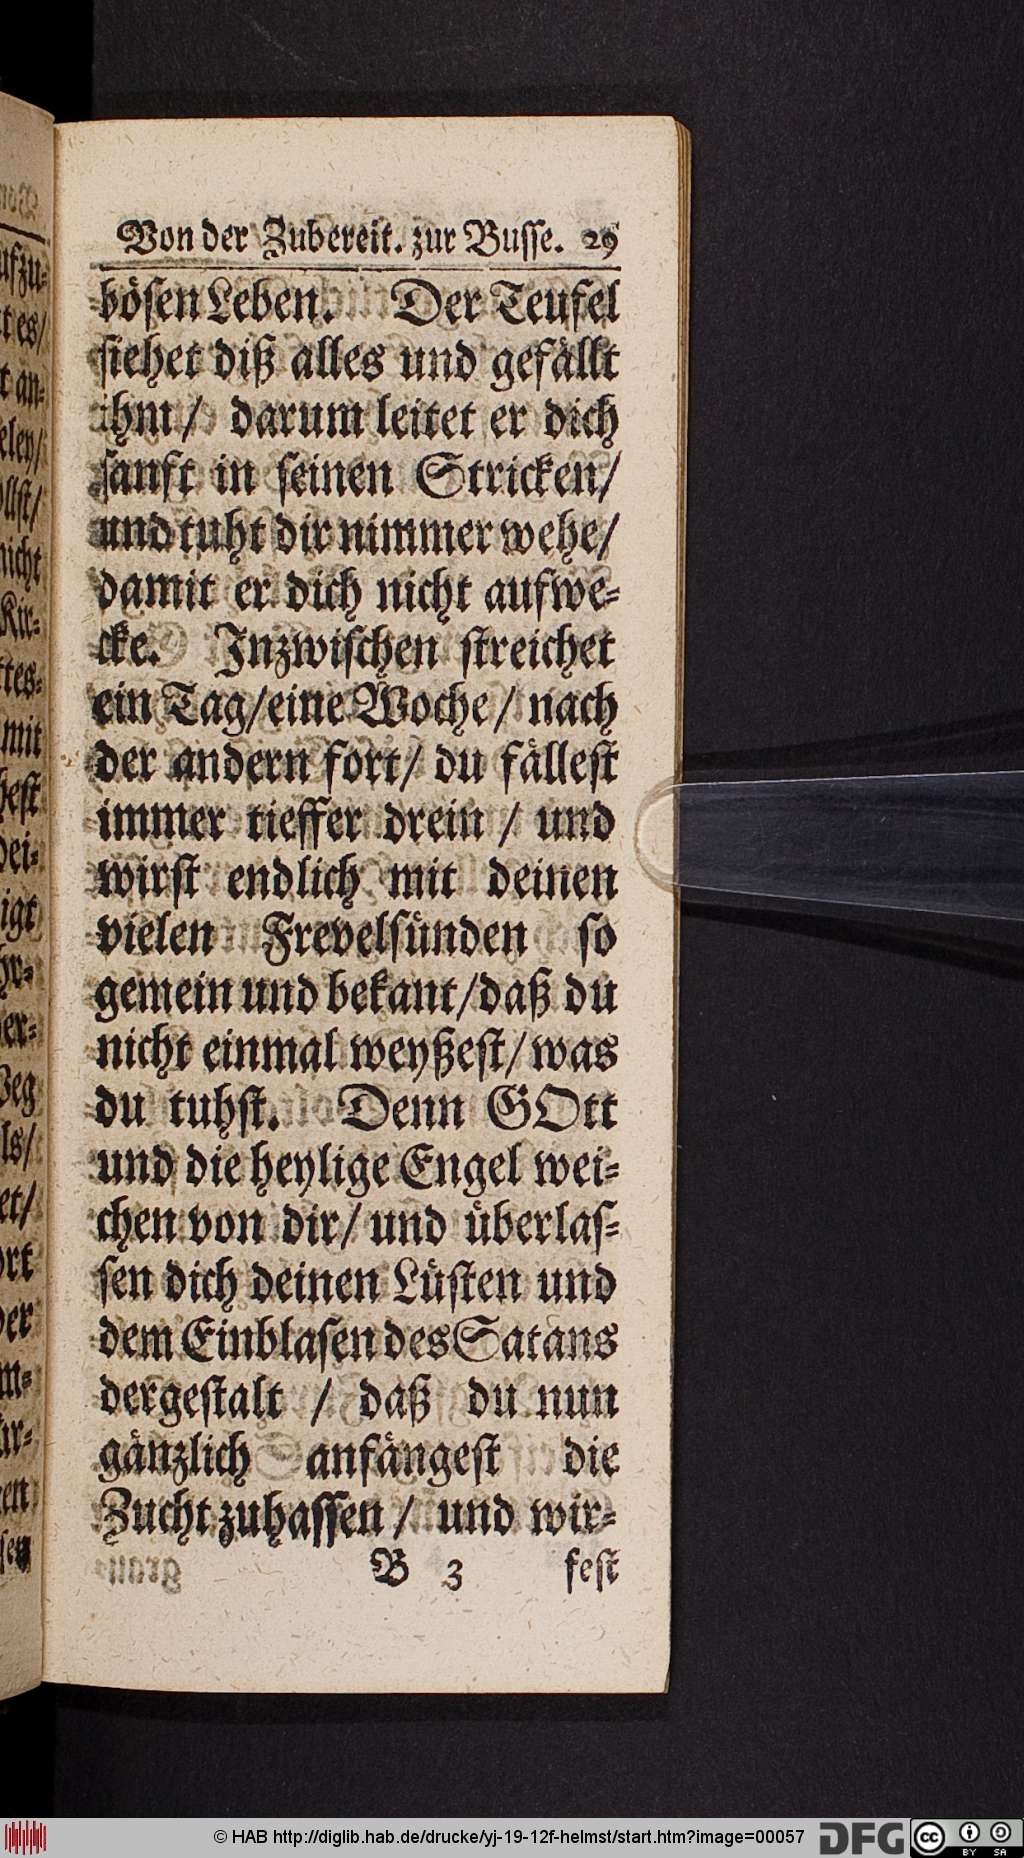 Von der Zubereit. zur Busse. 29
bösen Leben. Der Teufel
siehet diß alles und gefällt
ihm / darum leitet er dich
sanft in seinen Stricken/
und tuht dir nimmer wehe/
damit er dich nicht aufwe-
cke. Inzwischen streichet
ein Tag/eine Woche / nach
der andern fort/ du fällest
immer tieffer drein / und
wirst endlich mit deinen
vielen Frevelsünden so
gemein und bekant/daß du
nicht einmal weyßest/was
du tuhst. Denn GOtt
und die heylige Engel wei-
chen von dir/ und überlas-
sen dich deinen Lüsten und
dem Einblasen des Satans
dergestalt / daß du nun
gänzlich anfängest die
Zucht zuhassen / und wir-
B 3 fest
© HAB http://diglib.hab.de/drucke/yj-19-12f-helmst/start.htm?image=00057
DFG
cc BY SA